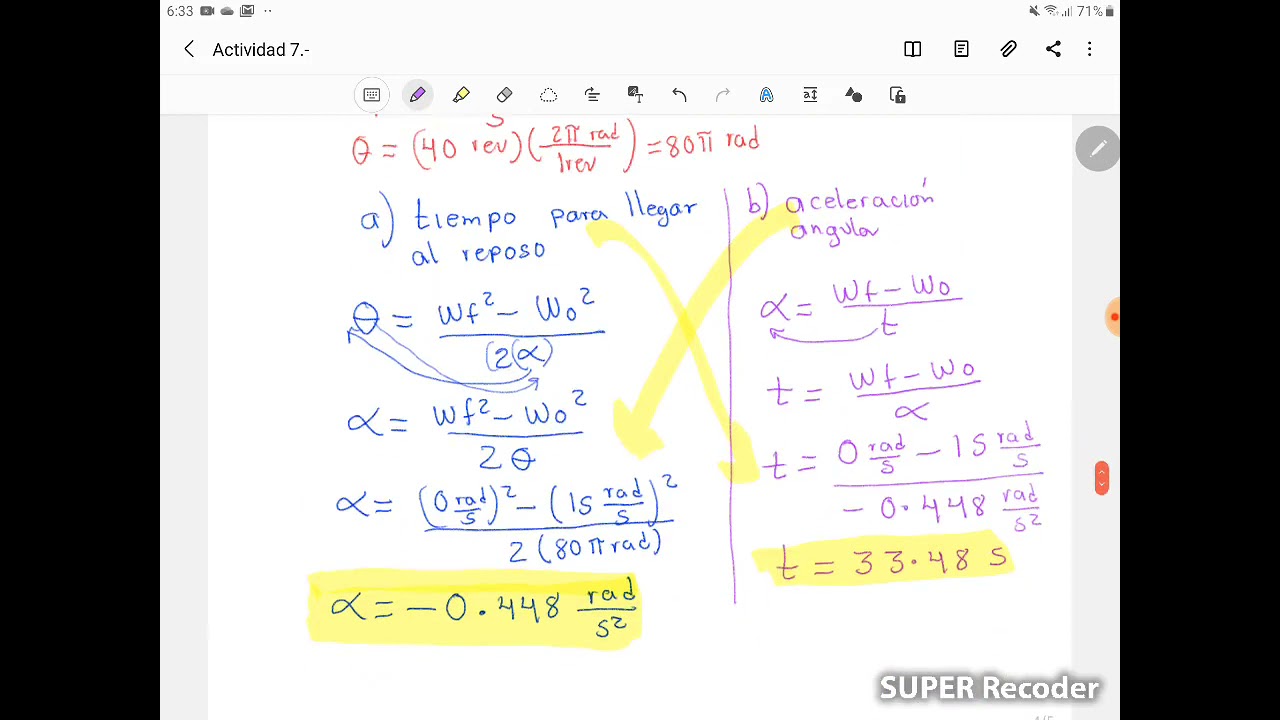 6:33
71%
Actividad 7.-
θ = (40 rev)(2π rad / 1rev) = 80π rad
a) tiempo para llegar
al reposo
θ = Wf² - Wo² / (2(α)
α = Wf² - Wo² / 2 θ
α = (0 rad/s)² - (15 rad/s)² / 2 (80π rad)
α = - 0.448 rad/s²
b) aceleración
angular
α = Wf - Wo / t
t = Wf - Wo / α
t = 0 rad/s - 15 rad/s / - 0.448 rad/s²
t = 33.48 s
SUPER Recoder